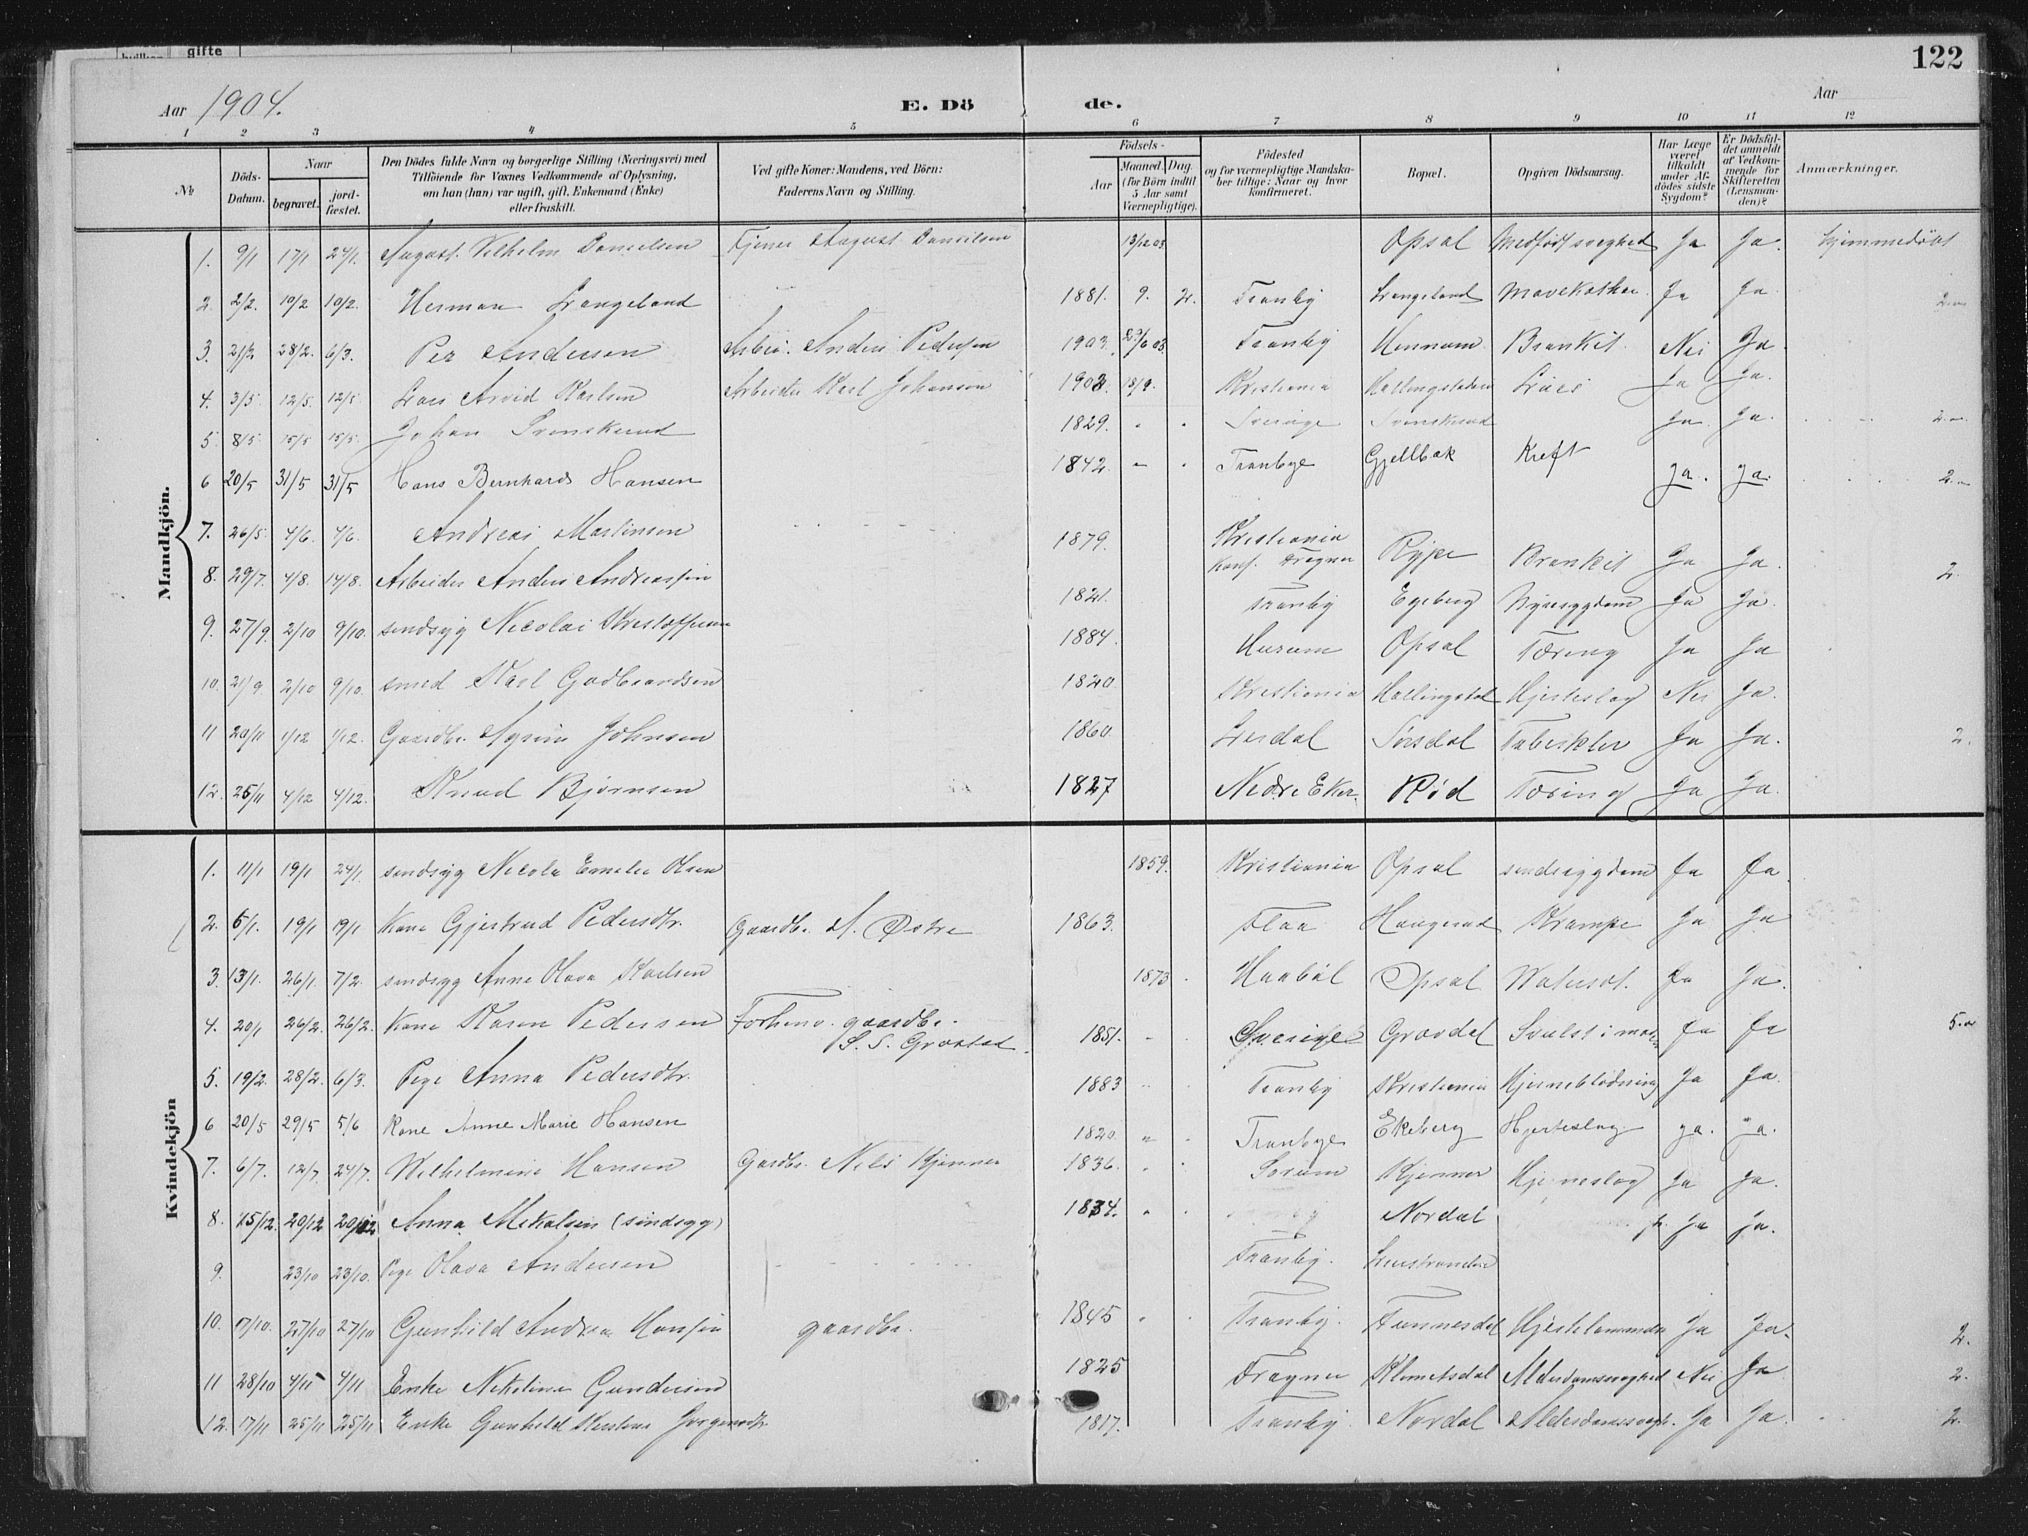 gifte
122
Aar 1904.
E. Dö de.
Aar
1 2 3 4 5 6 7 8 9 10 11 12
No
Döds-Datum.
Naar
begravet.
jord-fæstet.
Den Dödes fulde Navn og borgerlige Stilling (Næringsvei) med
Tilföiende for Voxnes Vedkommende af Oplysning,
om han (hun) var ugift, gift, Enkemand (Enke)
eller fraskilt.
Ved gifte Koner: Mandens, ved Börn:
Faderens Navn og Stilling.
Födsels-
Aar
Maaned. Dag.
(for Börn indtil
5 Aar samt
Værnepligtige).
Födested
og for værnepligtige Mandska-
ber tillige: Naar og hvor
konfirmeret.
Bopæl.
Opgiven Dödsaarsag.
Har Læge
været
tilkaldt
under Af-
dödes sidste
Sygdom?
Er Dödsfal-
det anmeldt
af Vedkom-
mende for
Skifteretten
(Lensman-
den)?
Anmærkninger.
Mandkjön.
1. 9/1 17/1 24/1. August Vilhelm Danielsen Tjener August Danielsen 13/12 03 Opsal Medfödt svaghed Ja Ja. hjemmedöbt
2. 2/2. 10/2 10/2. Herman Langeland 1881. 9. 2. Tranby Langeland Mavekatar Ja Ja
3. 21/2 28/2. 6/3. Per Andersen Arbei. Anders Pedersen 1903. 23/6 03 Tranby Hennum Bronkit. Nei Ja
4. 3/5. 12/5. 12/5 Lars Arvid Karlsen Arbeider Karl Johansen 1902. 13/9. Kristiania Ja Ja.
5. 8/5. 15/5 15/5. Johan Svenskerud 1829. Sverige Svenskerud Ja. Ja. 2.
6 20/5 31/5 31/5 Hans Bernhard Hansen 1842. Tranbye Gjellbæk Kreft ja. ja. 2.
7. 26/5. 4/6. 4/6. Andreas Martinsen 1879. Kristiania Konf. Frogner Rype Bronkit Ja Ja.
8. 29/7. 4/8. 14/8. Arbeider Anders Andreassen 1821. Tranby Egeberg Nyresygdom Ja Ja. 2.
9. 27/9. 2/10 9/10. sindsyg Nicolai Kristoffersen 1884. Hurum Opsal Tæring Ja Ja
10. 21/9 2/10 9/10. smed Karl Gudbrandsen 1820 Kristiania Hallingstad Hjerteslag Nei Ja.
11 20/11 1/12 1/12. Gaardbr. Johnsen 1860. Lierdal Sörsdal Tuberkler Ja Ja. 2.
12. 25/11 4/12 4/12. Knud Björnsen 1827 Nedre Eker. Röd Tæring Ja Ja.
Kvindekjön
1. 11/1 19/1 24/1. sindsyg Nicola Emelie Olsen 1859. Kristiania Opsal sindssygdom Ja Ja
2. 5/1. 19/1 19/1 Kone Gjertrud Pedersdtr. Gaardbr. A. Østre 1863. Flaa Haugerud Krampe Ja Ja
3. 13/1. 26/1. 7/2. sindsyg Anne Olava Karlsen 1873 Haaböl Opsal Vatersot. Ja Ja.
4. 20/1 26/2. 26/2. Kone Karen Pedersen Forhenv. gaardbr. 1851. Sverige Grøvdal Svulst i Ja Ja 5.
5. 19/2. 28/2. 6/3. Pige Anna Pedersdtr. 1883 Tranby Kristiania Hjerneblödning Ja Ja.
6 20/5 29/5 5/6 Kone Anne Marie Hansen 1820. Tranbye Ekeberg Hjerteslag ja. ja.
7. 6/7. 12/7. 24/7. Wilhelmine Hansen Gardbr. Nils Kjenner 1836. Sörum Kjenner Hjerneslag Ja Ja.
8. 15/12. 20/12 20/12 Anna Mikalsen (sindsyg) 1834. Nordal Ja Ja.
9. 23/10 23/10. Pige Olava Andersen Tranby.
10. 17/10. 27/10 27/10 Gunhild Andrea Hansen gaardbr. 1845 Tranby. Ja Ja. 2.
11 28/10 4/11 4/11 Enke Nikoline Gundersen 1825 Frogner Klemetsdal Alderdomssvaghed Nei Ja 2.
12. 17/11 25/11 25/11 Enke Gunhild Kirstine Jörgensdtr. 1817. Tranby. Nordal Alderdomssvagh. Ja Ja. 2.